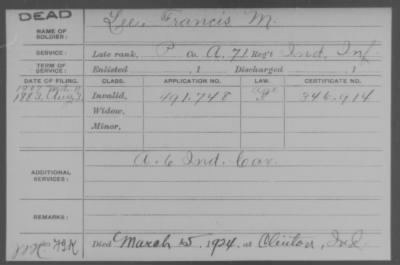 DEAD
NAME OF SOLDIER: Lee, Francis M.
SERVICE: Late rank, P Co. A, 71 Reg't Ind. Inf.
TERM OF SERVICE: Enlisted , 1 Discharged , 1
DATE OF FILING. CLASS. APPLICATION NO. LAW. CERTIFICATE NO.
1907 Mch 11
1883 Aug 3 Invalid, 491.748 346.914
Widow,
Minor,
ADDITIONAL SERVICES: A. 6 Ind. Cav.
REMARKS:
Died March 25, 1924, at Clinton, Ind.